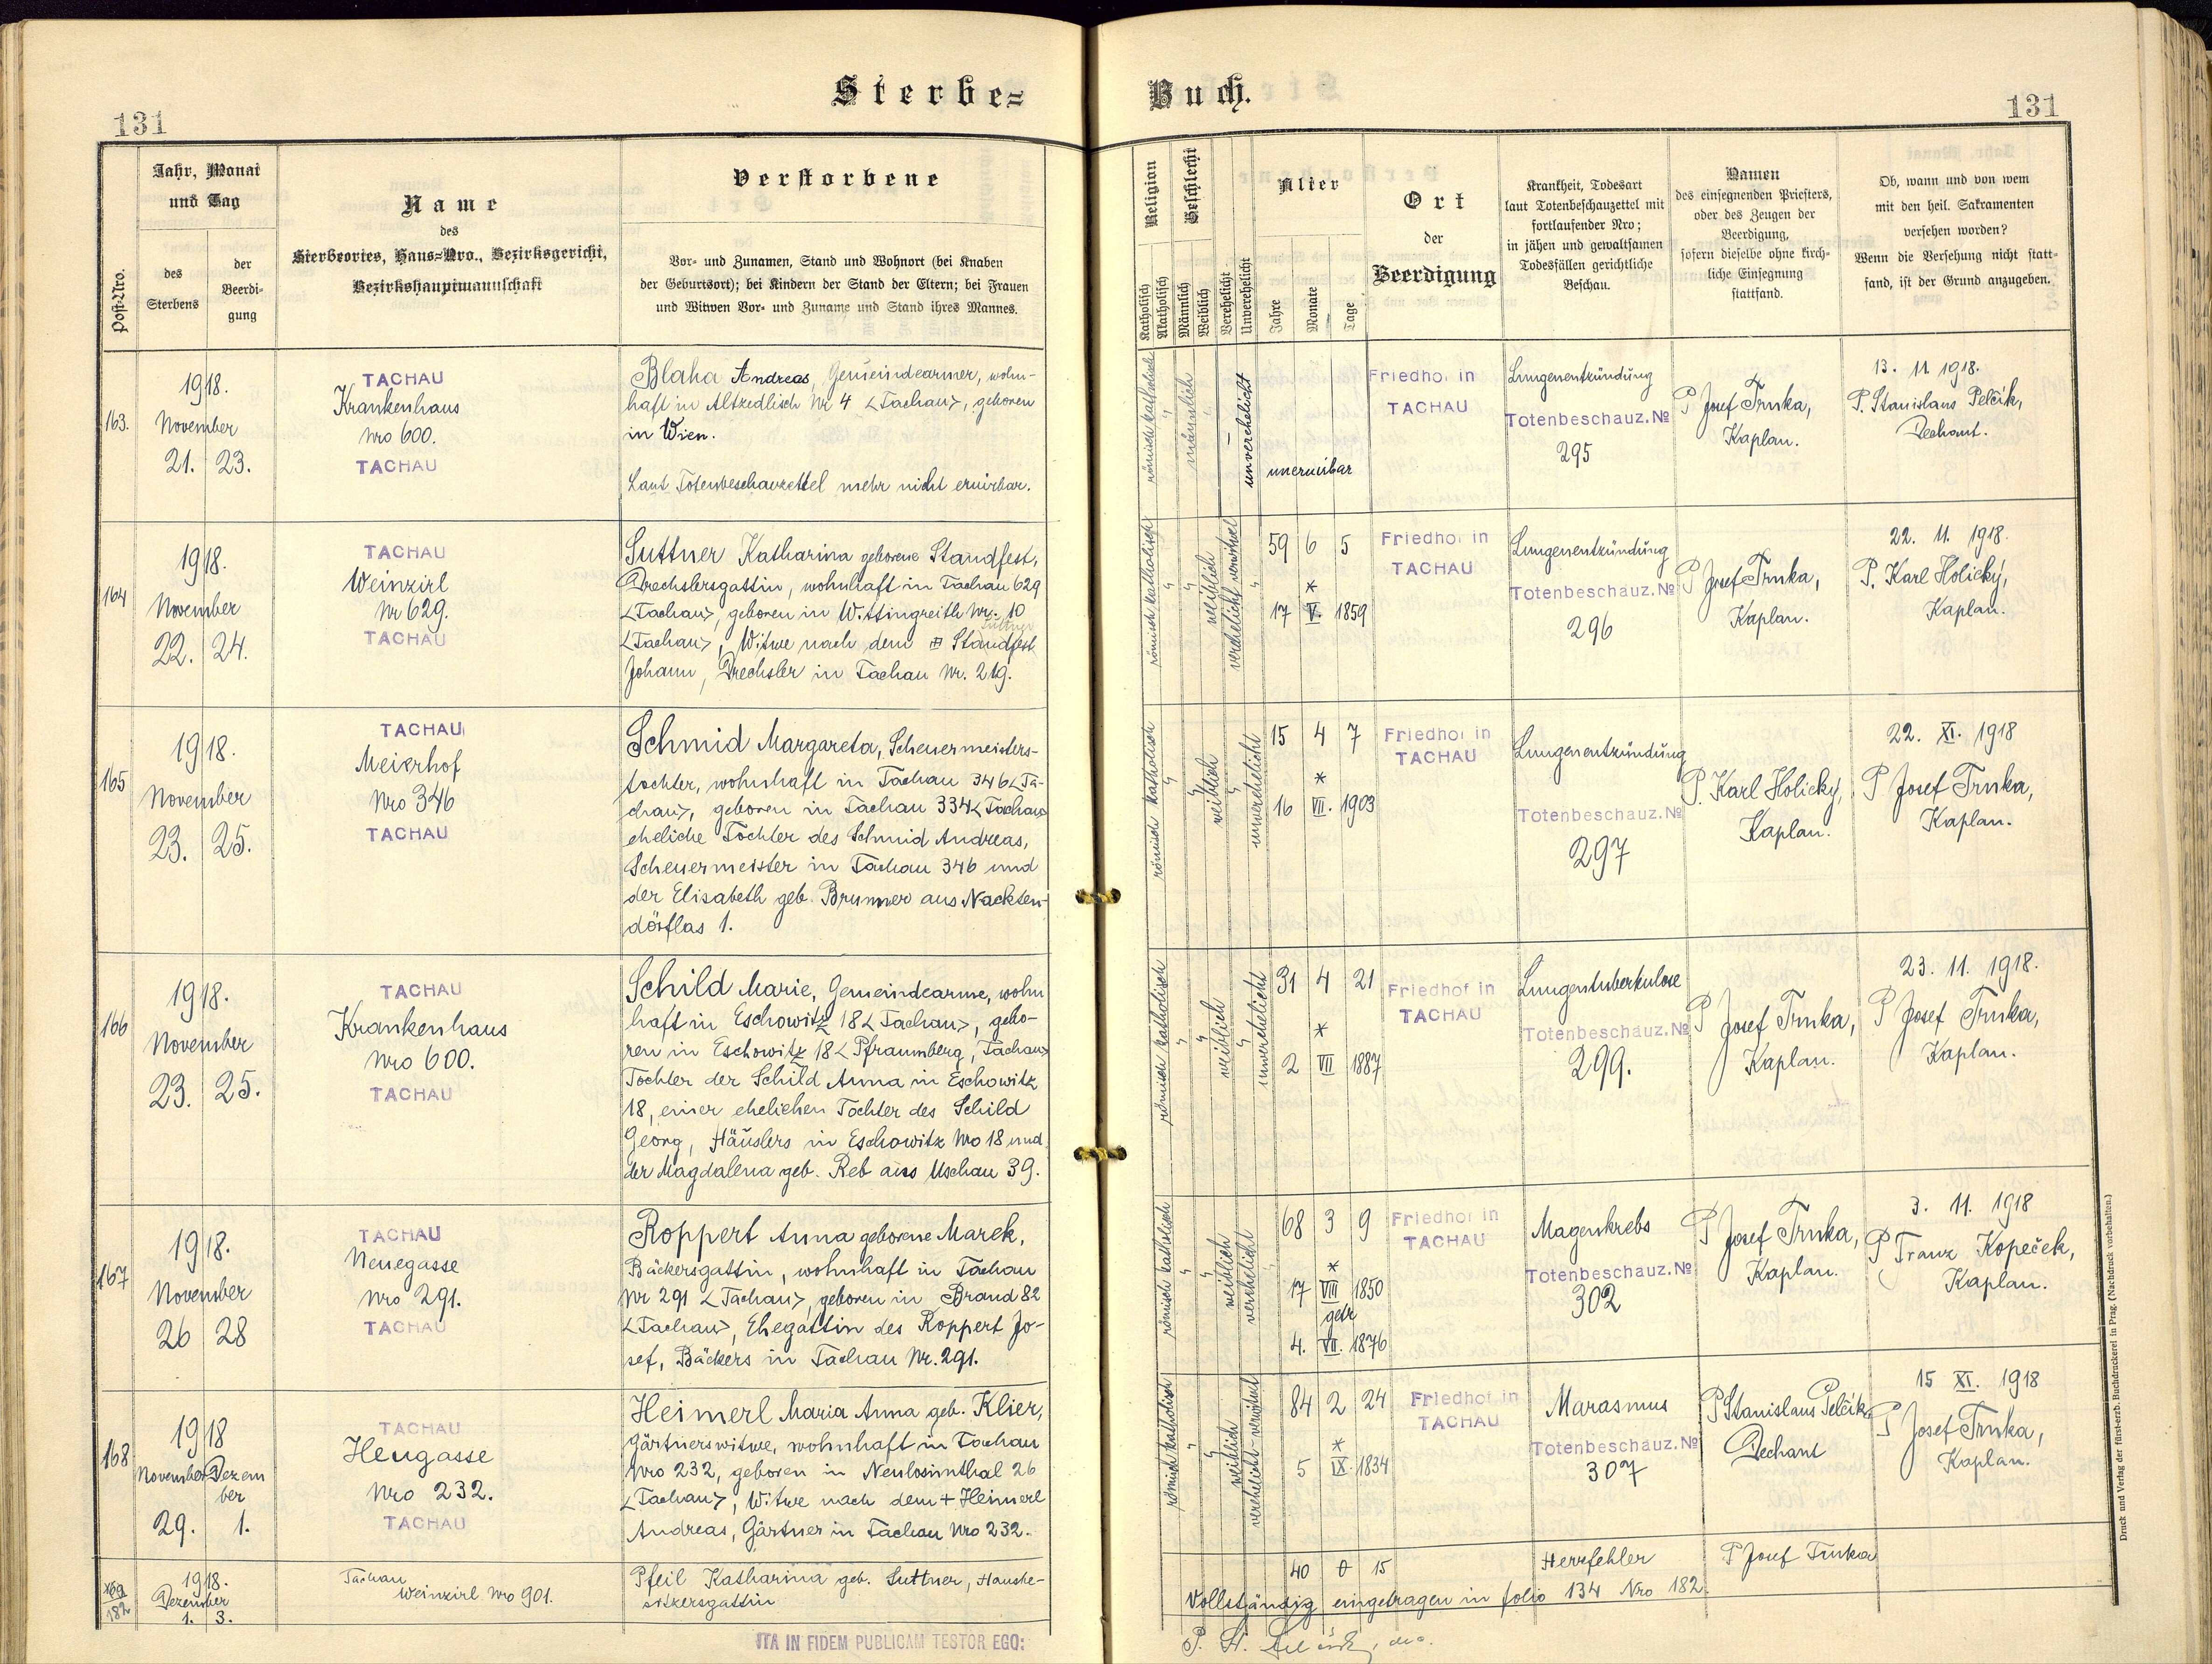 Sterbe=
Buch.
131
131
Post-Nro.
Jahr, Monat
und Tag
des
Sterbens
der
Beerdi-
gung
Name
des
Sterbeortes, Haus=Nro., Bezirksgericht,
Bezirkshauptmannschaft
Verstorbene
Vor- und Zunamen, Stand und Wohnort (bei Knaben
der Geburtsort); bei Kindern der Stand der Eltern; bei Frauen
und Witwen Vor- und Zuname und Stand ihres Mannes.
Religion
Katholisch
Akatholisch
Geschlecht
Männlich
Weiblich
Verehelicht
Unverehelicht
Alter
Jahre
Monate
Tage
Ort
der
Beerdigung
Krankheit, Todesart
laut Totenbeschauzettel mit
fortlaufender Nro;
in jähen und gewaltsamen
Todesfällen gerichtliche
Beschau.
Namen
des einsegnenden Priesters,
oder des Zeugen der
Beerdigung,
sofern dieselbe ohne kirch-
liche Einsegnung
stattfand.
Ob, wann und von wem
mit den heil. Sakramenten
versehen worden?
Wenn die Versehung nicht statt-
fand, ist der Grund anzugeben.
163.
1918.
November
21. 23.
TACHAU
Krankenhaus
Nro 600.
TACHAU
Blaha Andreas, Gemeindearmer, wohn-
haft in Altzedlisch Nr 4 <Tachau>, geboren
in Wien.
Laut Totenbeschauzettel mehr nicht eruirbar.
römisch katholisch
männlich
unverehelicht
uneruirbar
Friedhof in
TACHAU
Lungenentzündung
Totenbeschauz. №
295
P Josef Trnka,
Kaplan.
13. 11. 1918.
P. Stanislaus Pelčik,
Dechant.
164
1918.
November
22. 24.
TACHAU
Weinzirl
Nr 629.
TACHAU
Suttner Katharina geborene Standfest,
Drechslersgattin, wohnhaft in Tachau 629
<Tachau>, geboren in Wittingreith Nr. 10
Suttner
<Tachau>, Witwe nach dem Standfest
Johann, Drechsler in Tachau Nr. 219.
römisch katholisch
weiblich
verehelicht verwitwet
59 6 5
*
17 V. 1859
Friedhof in
TACHAU
Lungenentzündung
Totenbeschauz. №
296
P Josef Trnka,
Kaplan.
22. 11. 1918.
P. Karl Holický,
Kaplan.
165
1918.
November
23. 25.
TACHAU
Meierhof
Nro 346
TACHAU
Schmid Margareta, Scheuermeisters-
tochter, wohnhaft in Tachau 346 <Ta-
chau>, geboren in Tachau 334 <Tachau>
eheliche Tochter des Schmid Andreas,
Scheuermeister in Tachau 346 und
der Elisabeth geb. Brunner aus Nackten-
dörflas 1.
römisch katholisch
weiblich
unverehelicht
15 4 7
*
16 VII. 1903
Friedhof in
TACHAU
Lungenentzündung
Totenbeschauz. №
297
P. Karl Holický,
Kaplan.
22. XI. 1918
P Josef Trnka,
Kaplan.
166
1918.
November
23. 25.
TACHAU
Krankenhaus
Nro 600.
TACHAU
Schild Marie, Gemeindearme, wohn
haft in Eschowitz 18 <Tachau>, gebo-
ren in Eschowitz 18 <Pfraumberg, Tachau>
Tochter der Schild Anna in Eschowitz
18, einer ehelichen Tochter des Schild
Georg, Häuslers in Eschowitz Nro 18 und
der Magdalena geb. Reb aus Uschau 39.
römisch katholisch
weiblich
unverehelicht
31 4 21
*
2 VII 1887
Friedhof in
TACHAU
Lungentuberkulose
Totenbeschauz. №
299.
P Josef Trnka,
Kaplan.
23. 11. 1918.
P Josef Trnka,
Kaplan.
167
1918.
November
26 28
TACHAU
Neuegasse
Nro 291.
TACHAU
Roppert Anna geborene Marek,
Bäckersgattin, wohnhaft in Tachau
Nr 291 <Tachau>, geboren in Brand 82
<Tachau>, Ehegattin des Roppert Jo-
sef, Bäckers in Tachau Nr. 291.
römisch katholisch
weiblich
verehelicht
68 3 9
*
17 VIII 1850
getr
4. VII. 1876
Friedhof in
TACHAU
Magenkrebs
Totenbeschauz. №
302
P Josef Trnka,
Kaplan.
3. 11. 1918
P Franz Kopeček,
Kaplan.
168
1918
November Dezem
ber
29. 1.
TACHAU
Heugasse
Nro 232.
TACHAU
Heimerl Maria Anna geb. Klier,
Gärtnerswitwe, wohnhaft in Tachau
Nro 232, geboren in Neulosimthal 26
<Tachau>, Witwe nach dem + Heimerl
Andreas, Gärtner in Tachau Nro 232.
römisch katholisch
weiblich
verehelicht-verwitwet
84 2 24
*
5 IX. 1834
Friedhof in
TACHAU
Marasmus
Totenbeschauz. №
307
P Stanislaus Pelčik
Dechant
15 XI. 1918
P Josef Trnka,
Kaplan.
169
182
1918.
Dezember
1. 3.
Tachau
Weinzirl Nro 901.
Pfeil Katharina geb. Suttner, Hausbe-
sitzersgattin
40 0 15
Herzfehler
P Josef Trnka
Vollständig eingetragen in folio 134 Nro 182.
ITA IN FIDEM PUBLICAM TESTOR EGO:
P. St.
Druck und Verlag der fürst-erzb. Buchdruckerei in Prag. (Nachdruck vorbehalten.)